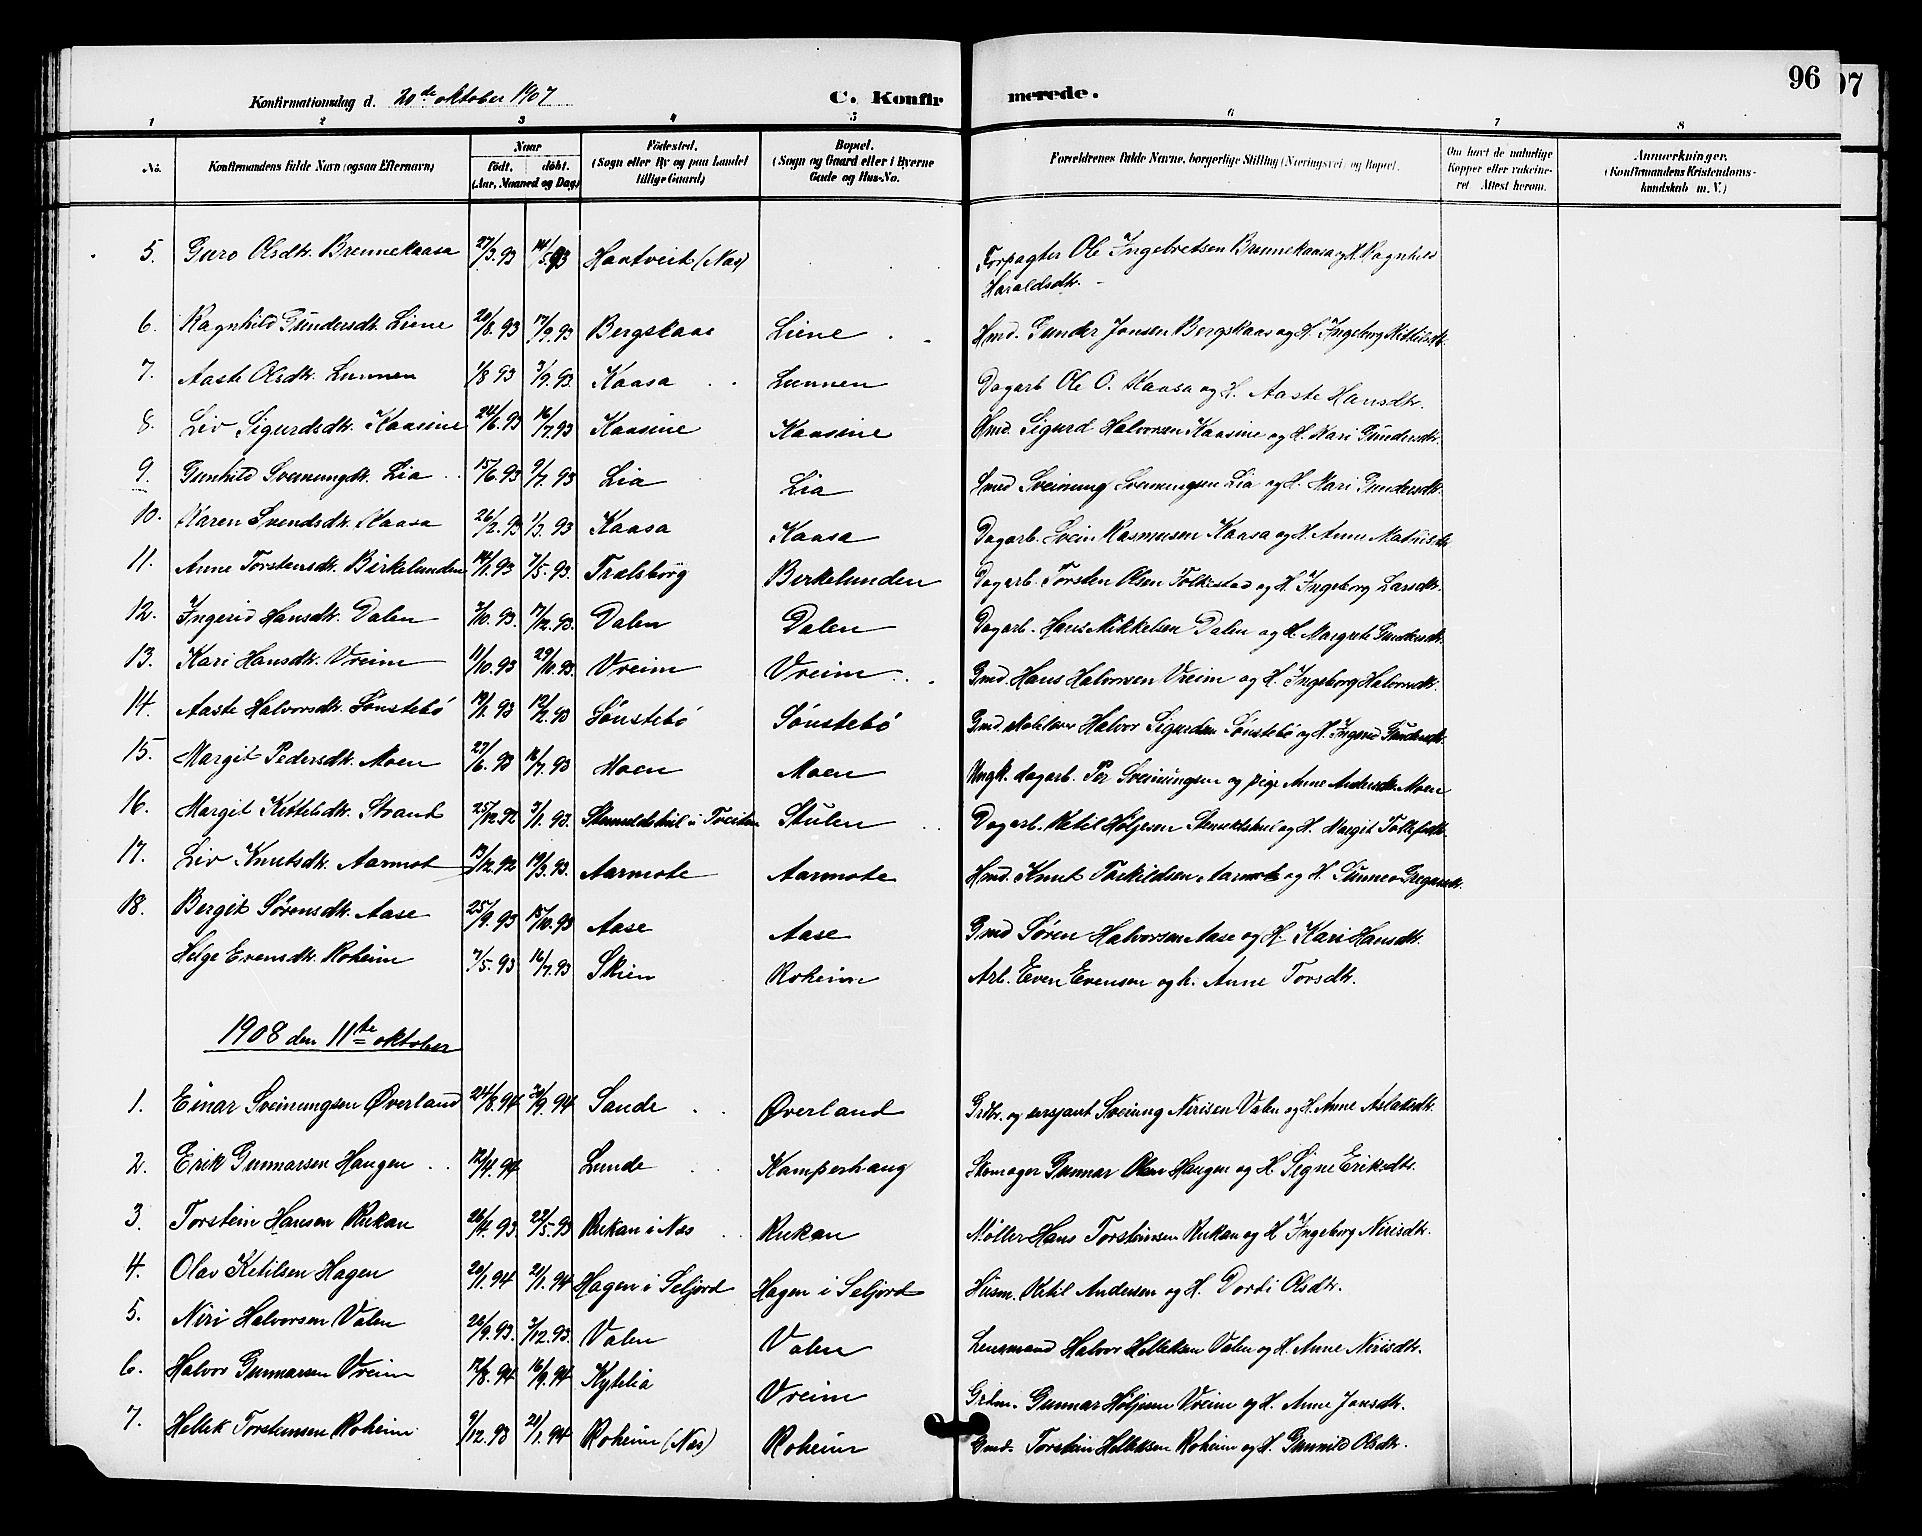 96
97
Konfirmationsdag d. 20de oktober 1907
C. Konfirmerede.
1 2 3 4 5 6 7 8
No. Konfirmandens fulde Navn (ogsaa Efternavn) Naar födt. döbt. (Aar, Maaned og Dag) Födested. (Sogn eller By og paa Landet tillige Gaard) Bopæl. (Sogn og Gaard eller i Byerne Gade og Hus-No. Forældrenes fulde Navne, borgerlige Stilling (Næringsvei) og Bopæl. Om havt de naturlige Kopper eller vakcineret. Attest herom. Anmærkninger. (Konfirmandens Kristendomskundskab m. V.)
5. Guro Olsdtr. Brennekaasa 27/3.93 14/5.93 Hautveit (Nas) Forpagter Ole Ingebretsen Brennekaasa og H. Ragnhild
Haraldsdtr.
6. Ragnhild Gundersdtr. Liene 20/8.93 17/9.93 Bergskaas Liene Hmd. Gunder Jonsen Bergskaas og H. Ingeborg Kittilsdtr.
7. Aaste Olsdtr. Lunnen 1/8 93 3/9.93. Kaasa Lunnen Dagarb. Ole O. Kaasa og H. Aaste Hansdtr.
8. Liv Sigurdsdtr. Kaasine 24/6.93 16/7.93 Kaasine Kaasine Hmd. Sigurd Halvorsen Kaasine og H. Kari Gundersdtr.
9. Gunhild Sveinungdtr. Lia 15/6.93 9/7.93 Lia Lia Hmd Sveinung Sveinungsen Lia og H. Kari Gundersdtr.
10. Karen Svendsdtr. Kaasa 26/2.93 1/3.93 Kaasa Kaasa Dagarb. Svein Rasmusen Kaasa og H. Anne
11. Anne Torstensdtr. Birkelunden 14/1.93 7/5.93. Trælsborg Birkelunden Dagarb. Torsten Olsen Folkestad og H. Ingeborg Larsdtr.
12. Ingerid Hansdtr. Dalen 3/10.93. 17/12.93. Dalen Dalen Dagarb. Hans Mikkelsen Dalen og H. Margrete Gundersdtr.
13. Kari Hansdtr. Vreim 11/10.93 29/10.93. Vreim Vreim Gmd. Hans Halvorsen Vreim og H. Ingeborg Halvorsdtr.
14. Aaste Halvorsdtr. Sønstebø 19/1.93 12/2.93 Sønstebø Sønstebø Gmd. Halvor Sigurdsen Sønstebø og H. Ingerid Gundersdtr.
15. Margit Pedersdtr. Moen 27/6.93 16/7.93 Moen Moen Ungk. dagarb. Per Sveinungsen og pige Anne Andersdtr. Moen
16. Margit Kittilsdtr. Strand 25/12.92 3/1.93. Stulen Dagarb. Ketil Høljesen og H. Margit Tollefsdtr.
17. Liv Knutsdtr. Aarmot 13/12.92 19/3.93. Aarmote Aarmote Hmd. Knut Torkildsen Aarmote og H. Gunneo Gregarsdtr.
18. Bergit Sørensdtr. Aase 25/9.93 15/10.93 Aase Aase Gmd Søren Halvorsen Aase og H. Kari Hansdtr.
Helge Evensdtr. Roheim 7/5.93 16/7.93 Skien Roheim Arb. Even Evensen og h. Anne Torsdtr.
1908 den 11te oktober
1. Einar Sveinungsen Øverland 24/8.94 30/9.94 Sande Øverland og sersjant Sveinung Nirisen Valen og H. Anne Aslaksdtr.
2. Erik Gunnarsen Haugen 12/4.94 Lunde Kamperhaug Skomager Gunnar Olsen Haugen og H. Signe Eriksdtr.
3. Torstein Hansen Rukan 26/4.93 22/5.93 Rukan i Nas Rukan Møller Hans Torsteinsen Rukan og H. Ingeborg Nirisdtr.
4. Olav Ketilsen Hagen 20/1.94 21/1.94 Hagen i Seljord Hagen i Seljord Husm. Ketil Andersen og H. Dordi Olsdtr.
5. Niri Halvorsen Valen 26/9.93. 3/12.93. Valen Valen Lensmand Halvor Helleksen Valen og H. Anne Nirisdtr.
6. Halvor Gunnarsen Vreim 12/8.94 16/9.94 Kytelia Vreim Gunnar Høljesen Vreim og H. Anne Jonsdtr.
7. Hellek Torsteinsen Roheim 9/12.93 21/1.94 Roheim (Nas) Roheim Gmd. Torstein Helleksen Roheim og H. Gunnild Olsdtr.